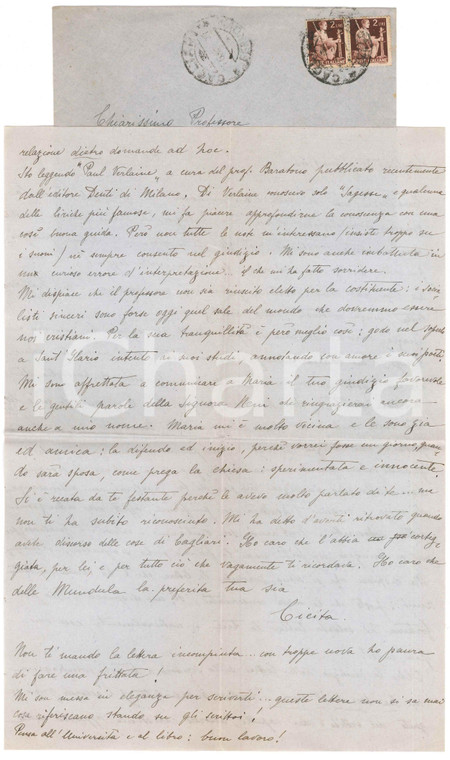 Chiarissimo Professore
relazione dietro domande ad hoc.
Sto leggendo "Paul Verlaine" a cura del prof. Baratono pubblicato recentemente
dall'editore Denti di Milano. Di Verlaine conoscevo solo "Sagesse" e qualcuna
delle liriche più famose, mi fa piacere approfondirne la conoscenza con una
così buona guida. Però non tutte le note m'interessano (insiste troppo su
i suoni) né sempre consento nel giudizio. Mi sono anche imbattuta in
un curioso errore d'interpretazione: il che mi ha fatto sorridere.
Mi dispiace che il professore non sia riuscito eletto per la costituente: i socia
listi sinceri sono forse oggi quel sale del mondo che dovremmo essere
noi cristiani. Per la sua tranquillità è però meglio così: gode nel
a Sant'Ilario intento ai suoi studi, annotando con amore i suoi poeti.
Mi sono affrettata a comunicare a Maria il tuo giudizio favorevole
e le gentili parole della Signora di ringraziarti ancora
anche a mio nome. Maria mi è molto vicina e le sono già
ed amica: la difendo ed inizio, perché vorrei fosse un giorno, quan
do sarà sposa, come prega la chiesa: sperimentata e innocente.
Si è recata da te festante perché le avevo molto parlato di te
non ti ha subito riconosciuto. Mi ha detto d'averti ritrovato quando
avete discorso delle cose di Cagliari. Ho caro che l'abbia corteg-
giata, per lei e per tutto ciò che vagamente ti ricordava. Ho caro che
delle Mundula la preferita tua sia
Cicita.
Non ti mando la lettera incompiuta... con troppe uova ho paura
di fare una frittata!
Mi son messa in eleganza per scriverti... queste lettere non si sa mai
cosa riferiscano stando su gli scrittoi!
Pensa all'Università e al libro: buon lavoro!
iCharta